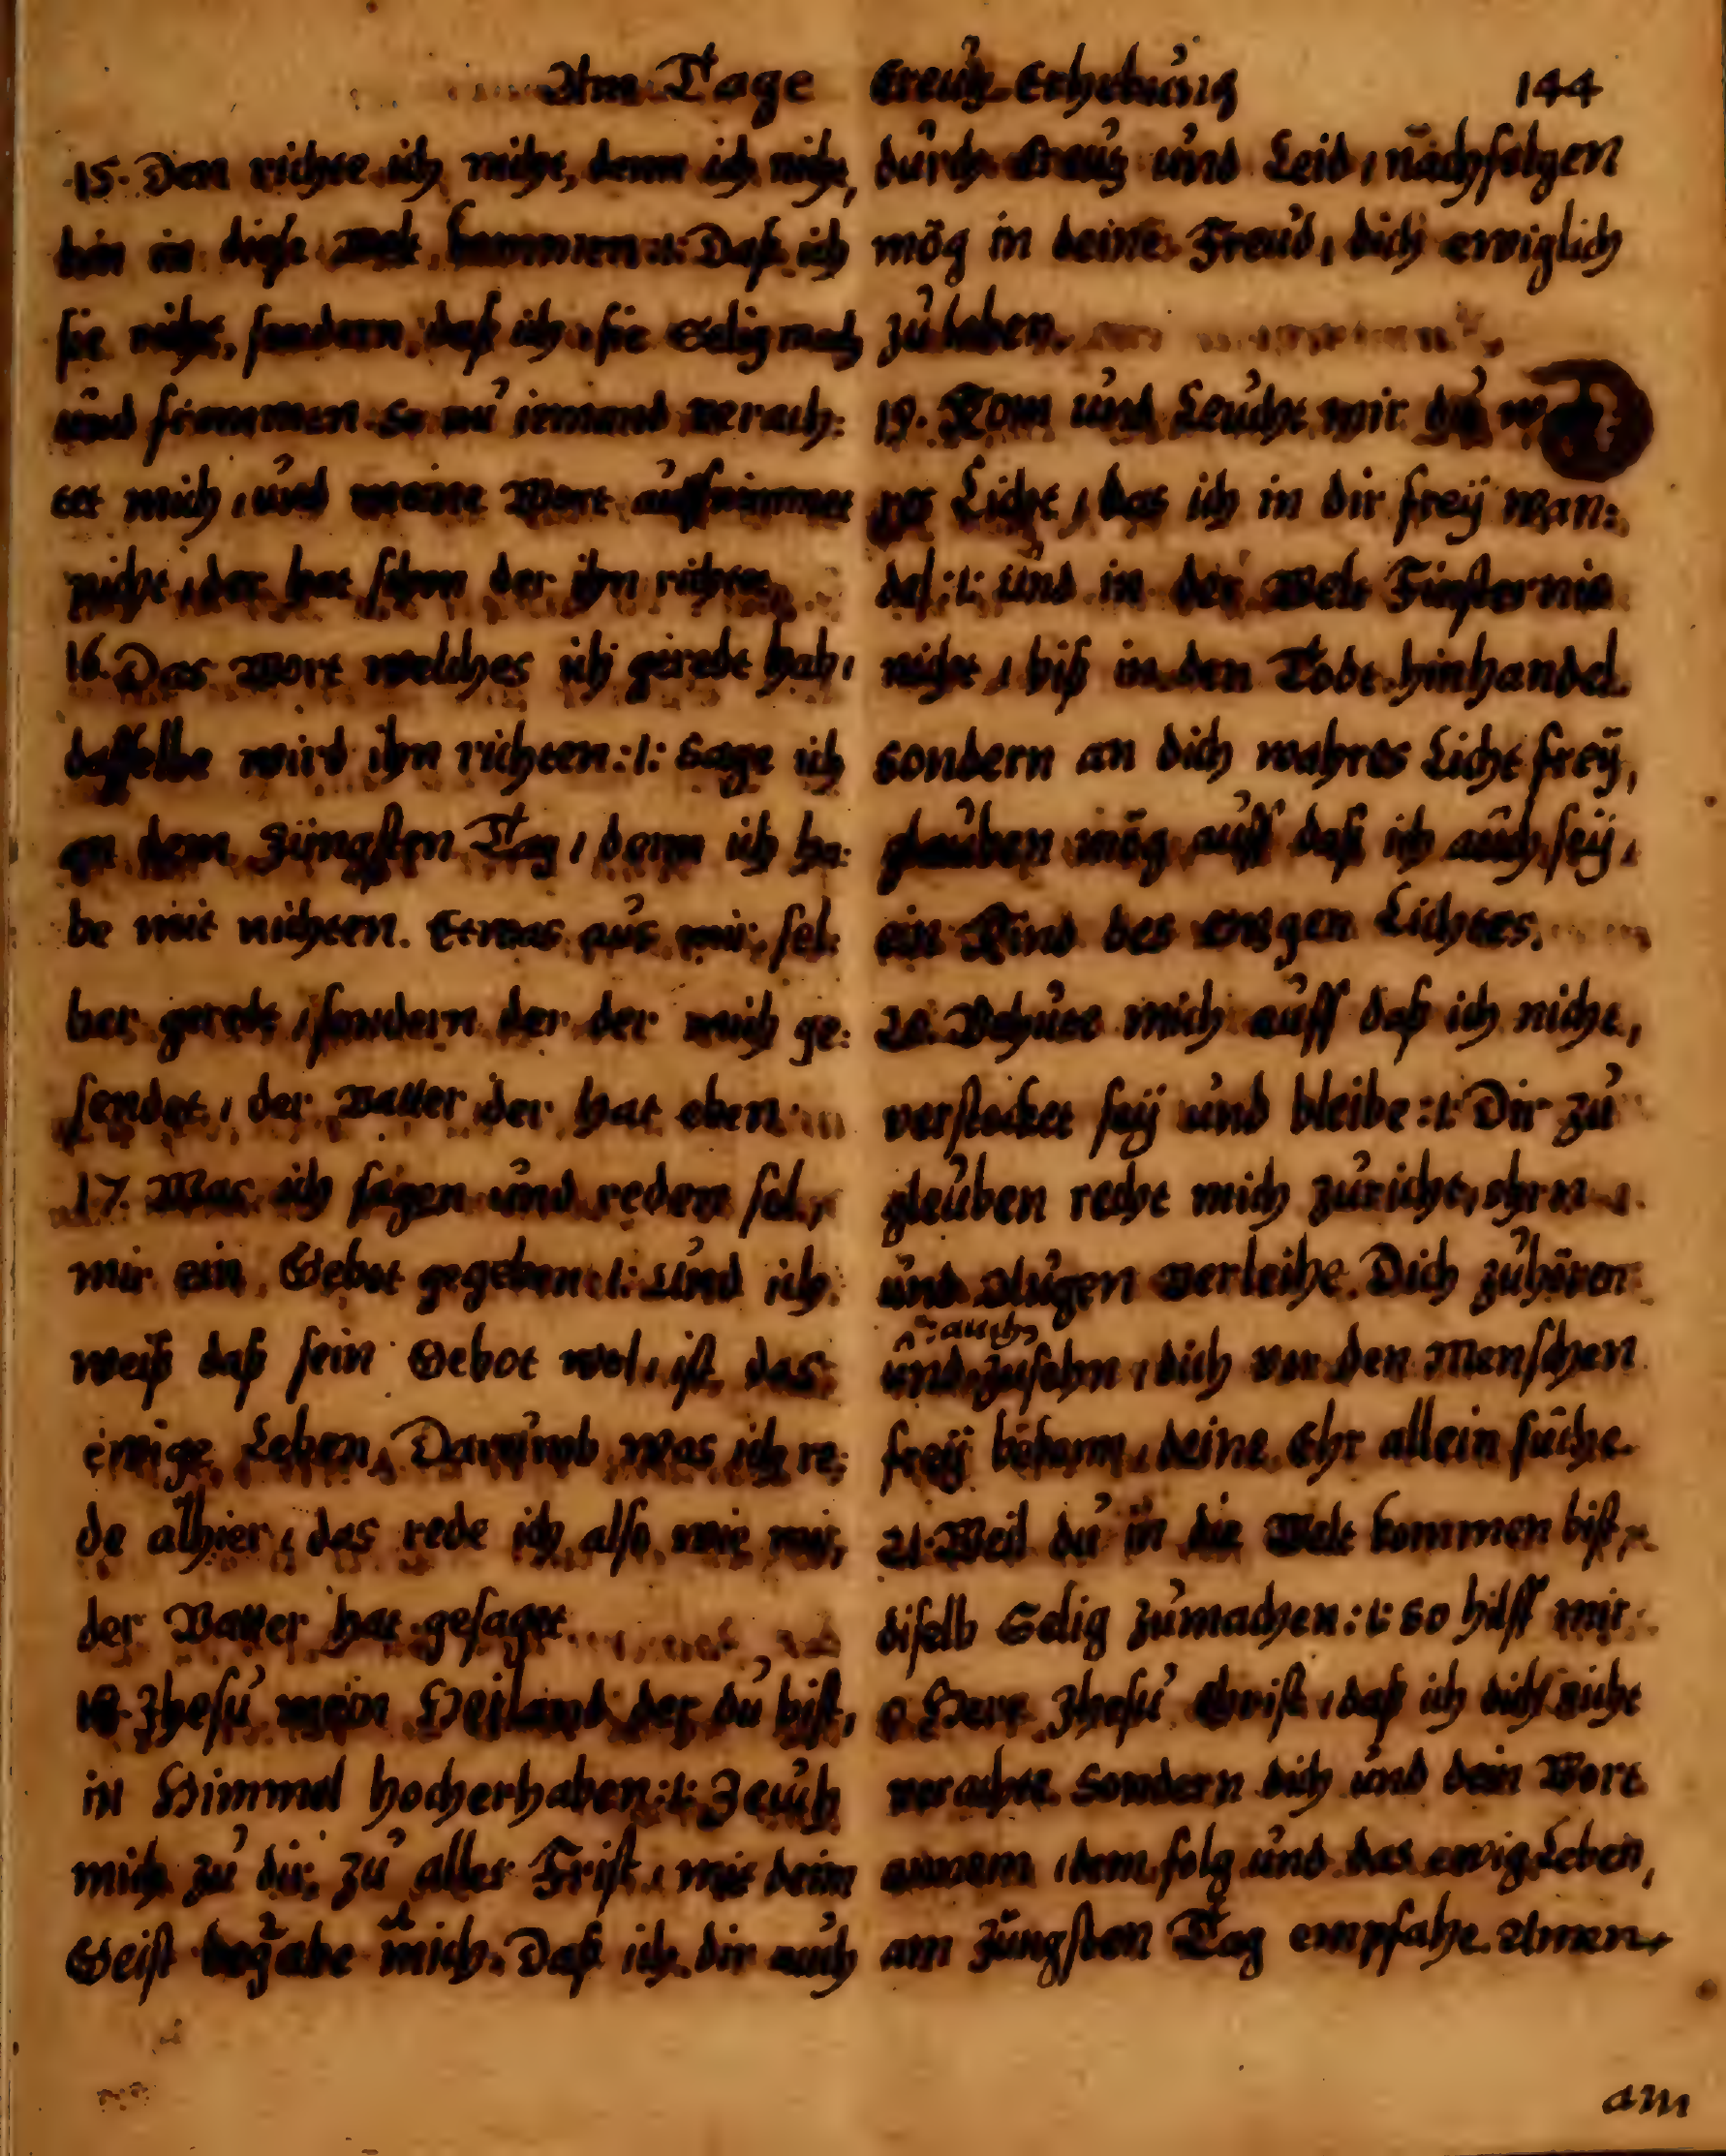 Am Tage Creutz Erhebung 144
15. Den richte ich nicht, denn ich nicht,
bin in diese Welt kommen :l: Daß ich
sie richt, sondern, daß ich sie Selig mach
und frommen. So nu iemand verach:
tet mich, und meine Wort auffnimmet
nicht, der hat schon der ihn richtet,
16. Das Wort welches ich geredt hab,
dasselbe wird ihn richten :l: Sage ich
an dem Jüngsten Tag, denn ich ha:
be mit nichten. Etwas aus mir sel:
ber geredt, sondern der der mich ge:
sendet, der Vatter der hat eben
17. Was ich sagen und reden sol,
mir ein Gebot gegeben :l: Und ich
weiß daß sein Gebot wol, ist das
ewige Leben, Darumb was ich re:
de alhier, das rede ich also wie mir,
der Vatter hat gesaget
18. Jhesu mein Heiland der du bist,
in Himmel hocherhaben :l: Zeuch
mich zu dir, zu aller Frist, mit deim
Geist begabe mich. Daß ich dir auch
durch Creutz und Leid, nachfolgen
mög in deine Freud, dich ewiglich
zu loben.
19. Kom und Leucht mir du
res Licht, das ich in dir frey wan:
del :l: und in der Welt Finsternis
nicht, biß in den Todt hinhandel.
sondern an dich wahres Licht frey,
glauben mög auff daß ich auch sey,
ein Kind des ewgen Lichtes.
20. Behüte mich auff daß ich nicht,
verstocket sey und bleibe :l: Dir zu
gleuben recht mich zuricht, ohrn
und Augen verleihe. Dich zuhören
auch
und zusehn, dich vor den Menschen
frey bekenn, deine Ehr allein suche.
21. Weil du in die Welt kommen bist,
diselb Selig zumachen :l: so hilff mir
o Herr Jhesu Christ, daß ich dich nicht
verachte. Sondern dich und dein Wort
annem, dem folg und das ewig Leben,
am Jüngsten Tag empfahe. Amen
am